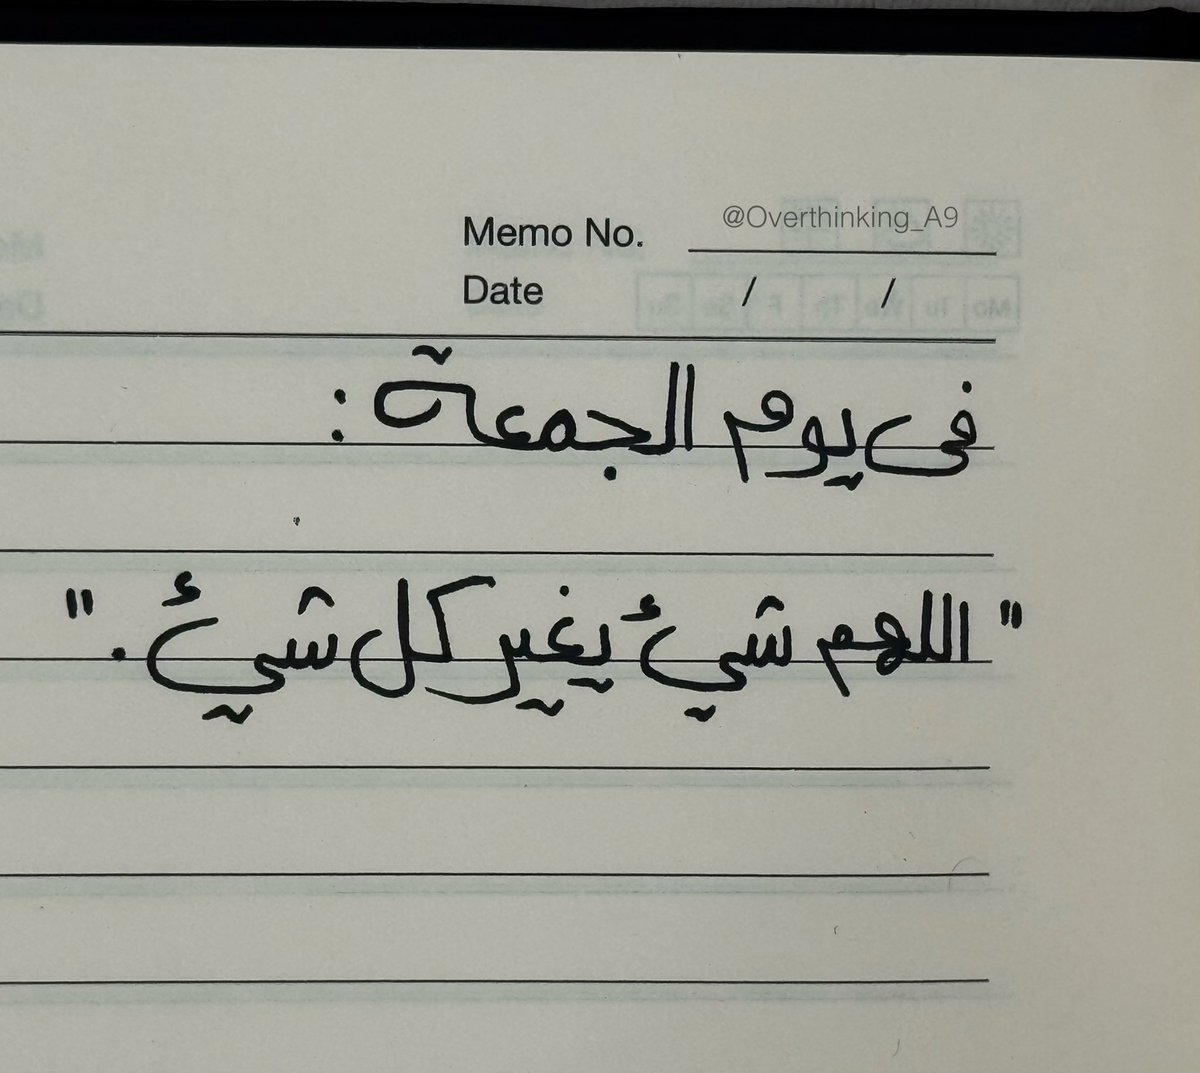 Memo No. @Overthinking_A9
Date / /
في يوم الجمعة :
" اللهم شيئ يغير كل شيئ . "